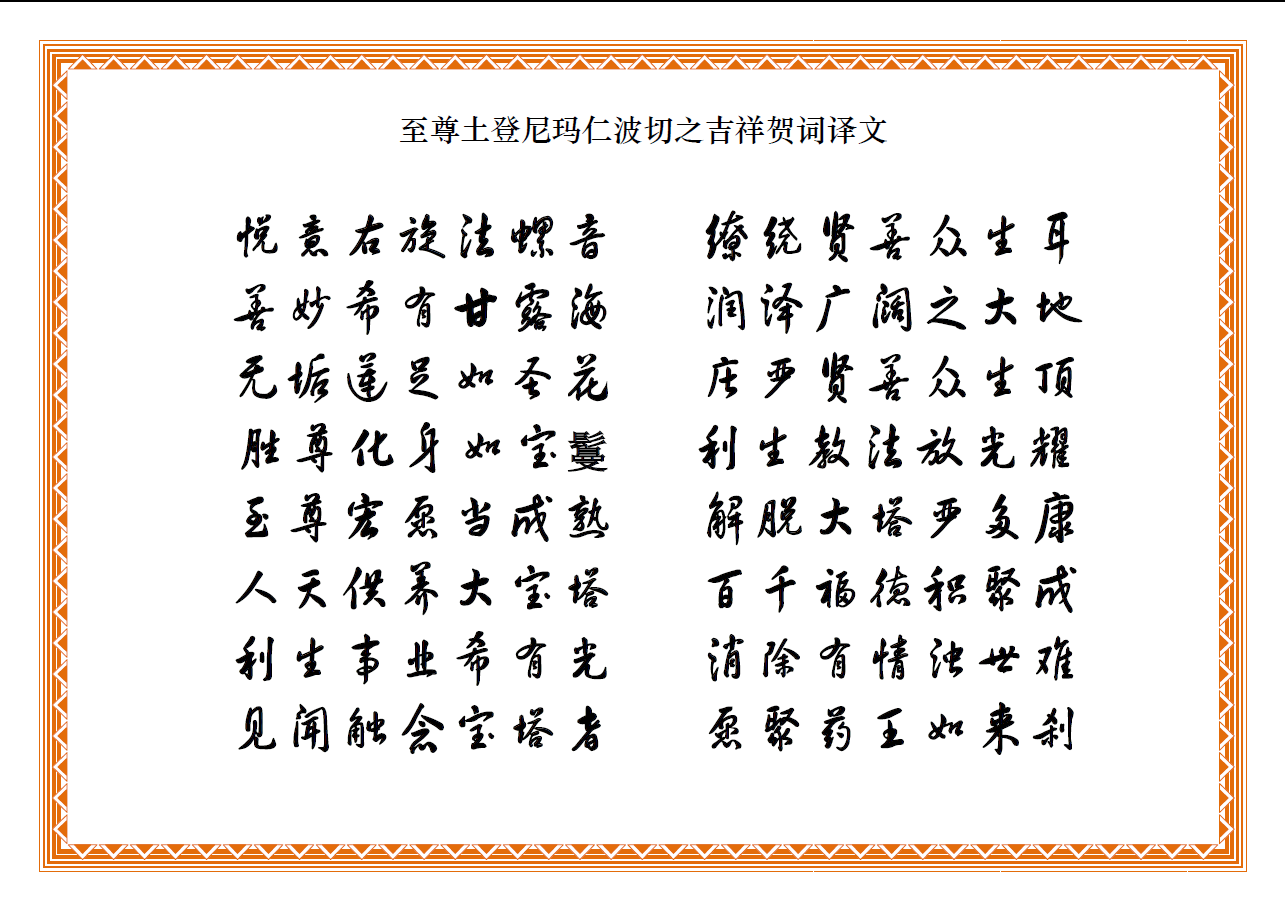 至尊土登尼玛仁波切之吉祥贺词译文
悦意右旋法螺音 缭绕贤善众生耳
善妙希有甘露海 润泽广阔之大地
无垢莲足如圣花 庄严贤善众生顶
胜尊化身如宝鬘 利生教法放光耀
至尊宏愿当成熟 解脱大塔严多康
人天供养大宝塔 百千福德积聚成
利生事业希有光 消除有情浊世难
见闻触念宝塔者 愿聚药王如来刹